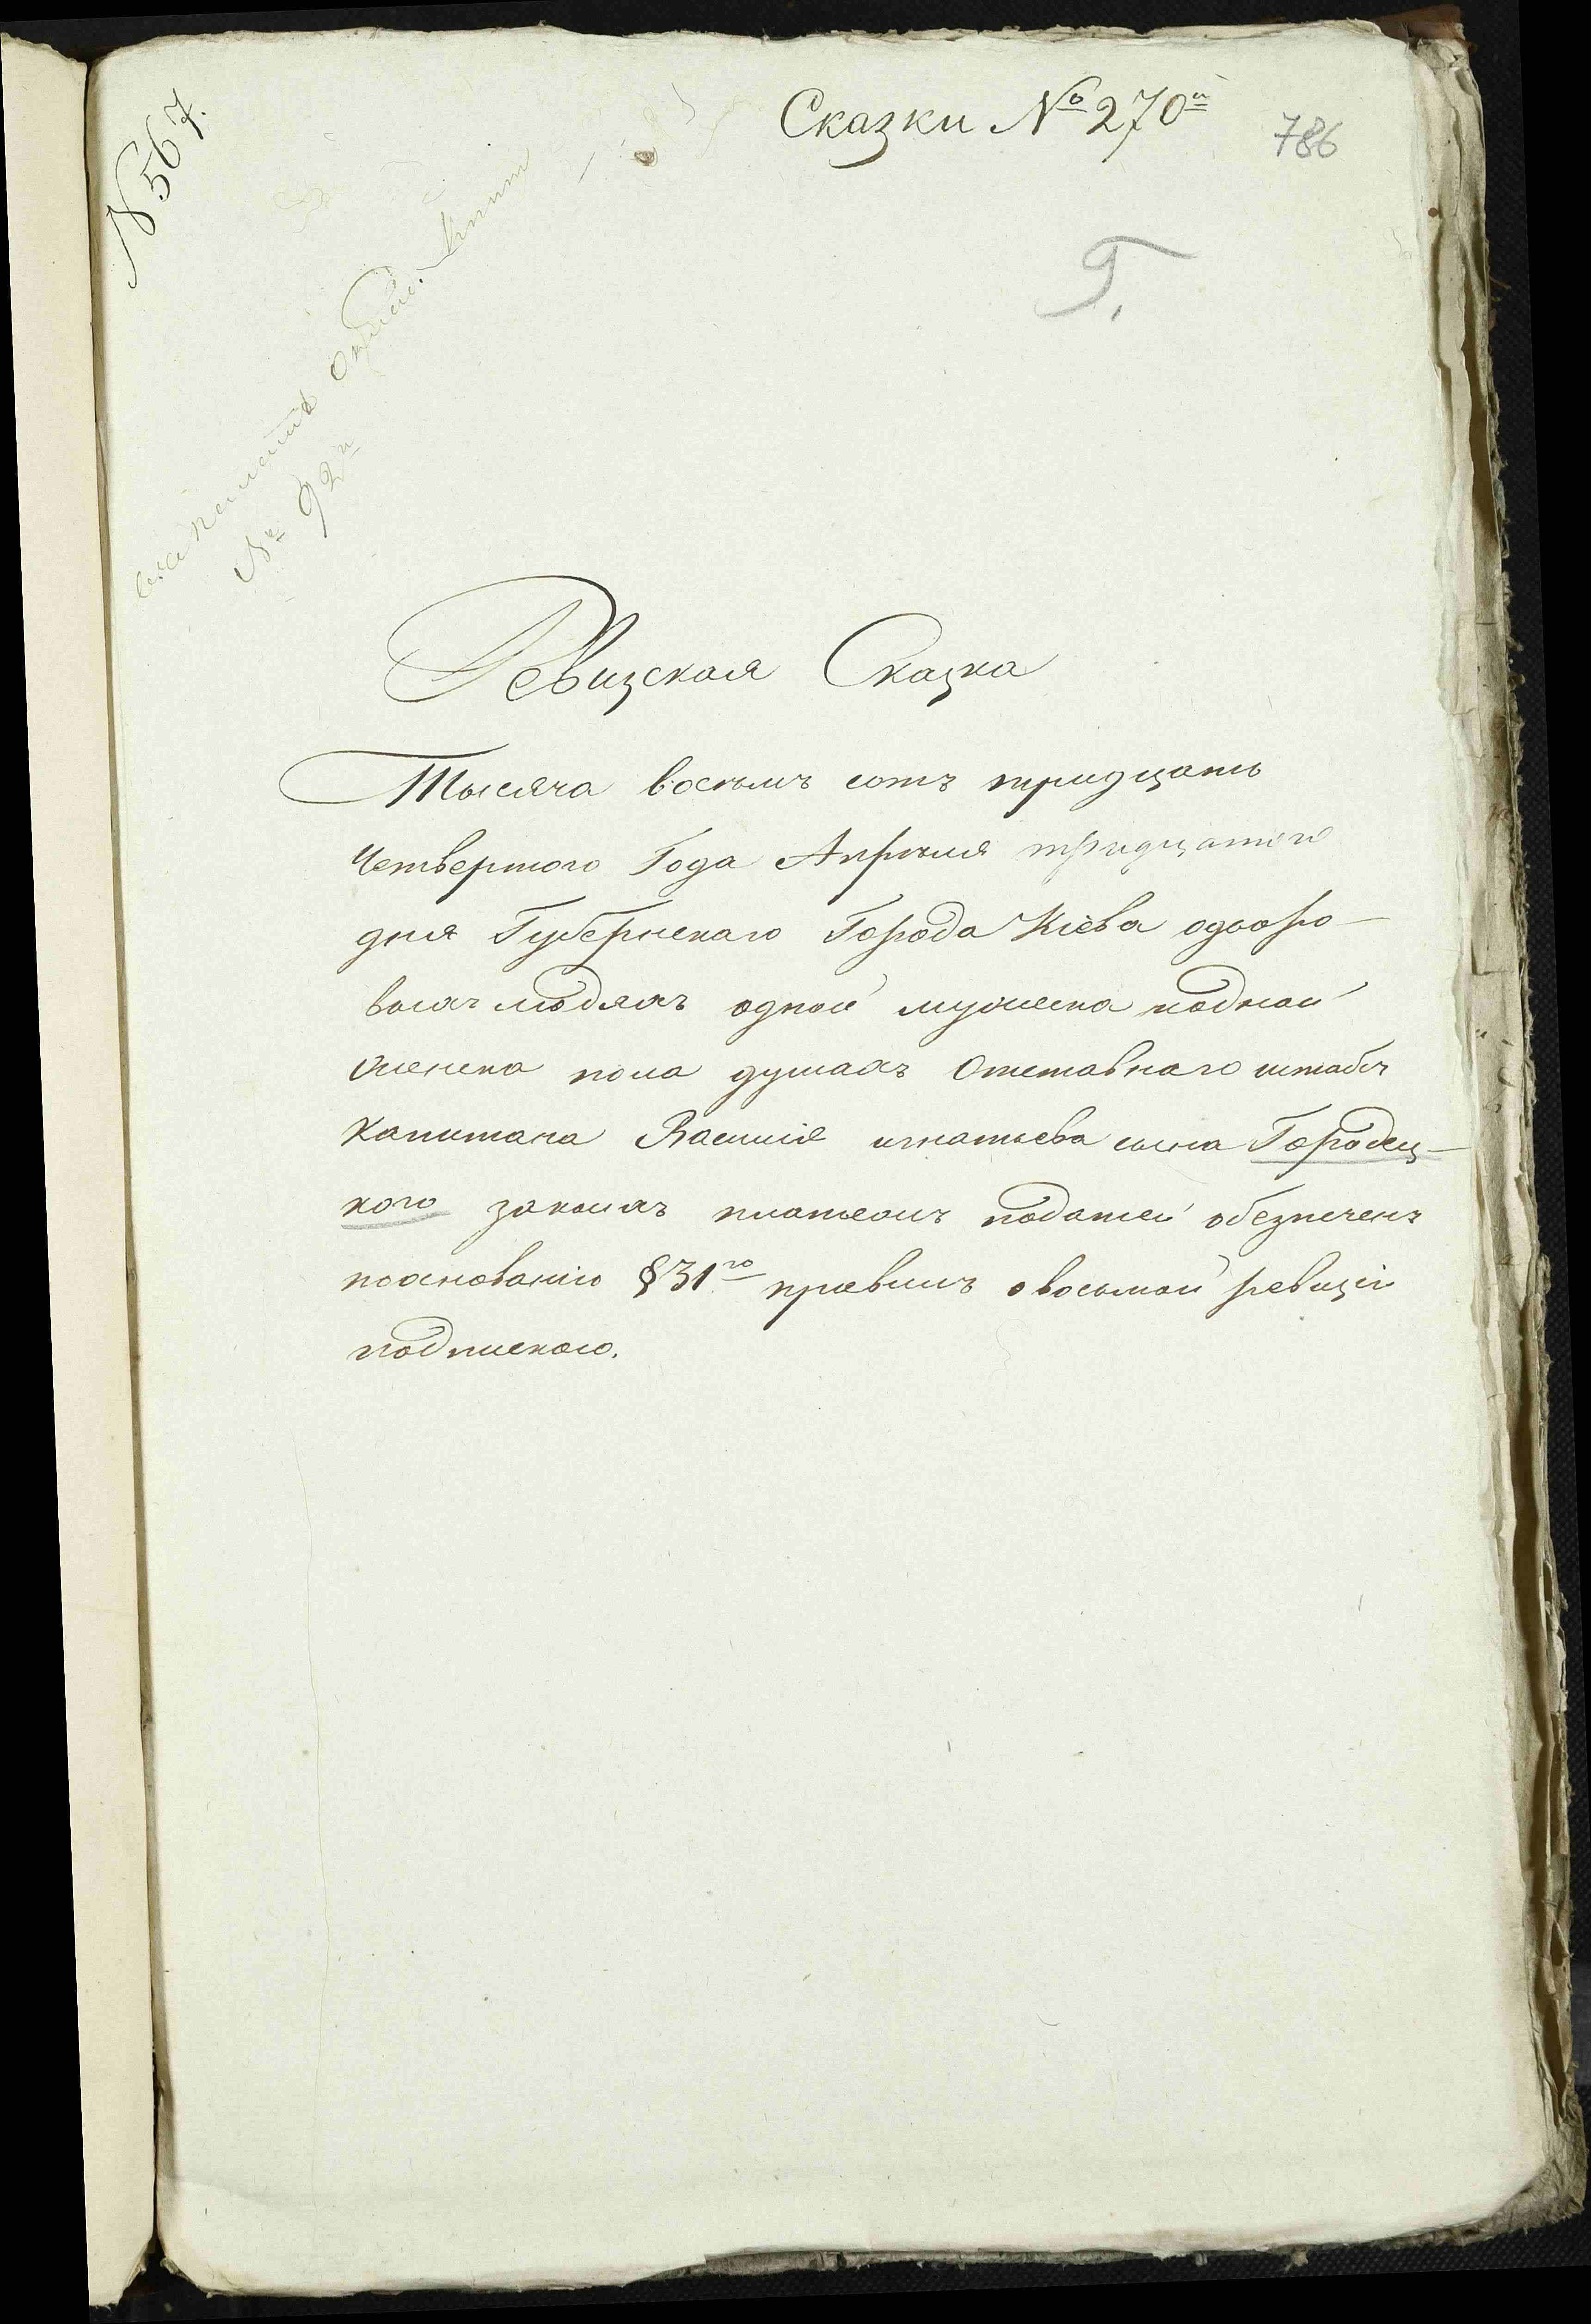 N 567.
Сказки № 270й
786
Г.
№ 92й
Ревизская Сказка
Тысяча восемъ сотъ тридцать
Четвертого Года Апреля тридцатого
дня Губернскаго Города Кіева одворо-
выхъ людяхъ одной мужеска иодной
женска пола душахъ Отставнаго штабсъ
Капитана Василія игнатьева сына Городец-
кого закоихъ платежъ податей обезпеченъ
пооснованію §31го правилъ овосьмой ревизіи
подпискою.